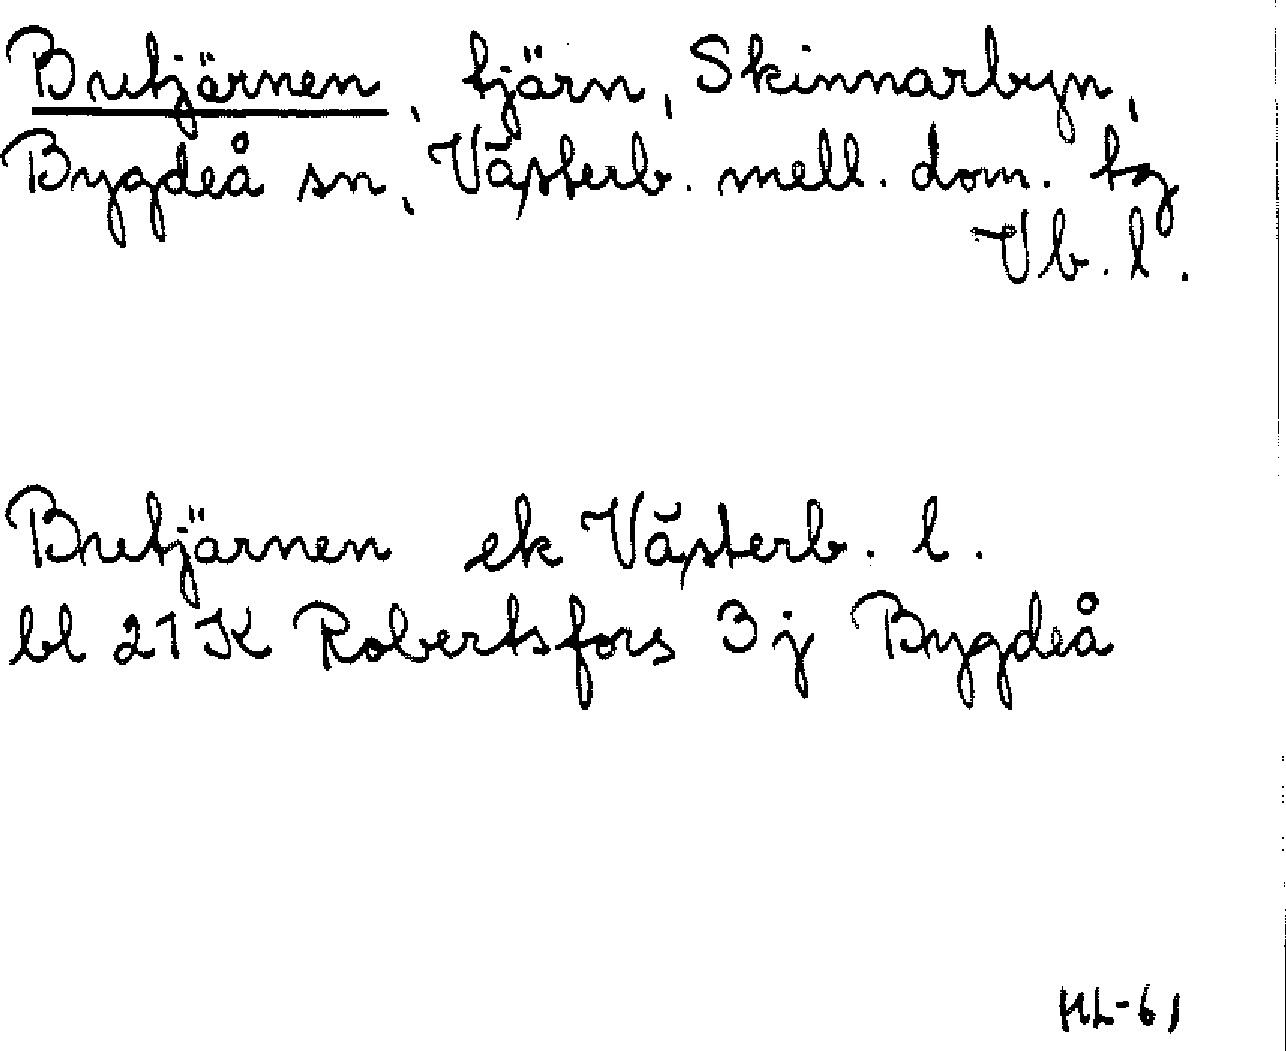 Brutjärnen, tjärn, Skinnarbyn,
Bygdeå sn, Västerb. mell. dom. tg
Vb. l.
Brutjärnen ek Västerb. l.
bl 21K Robertsfors 3j Bygdeå
HL-61